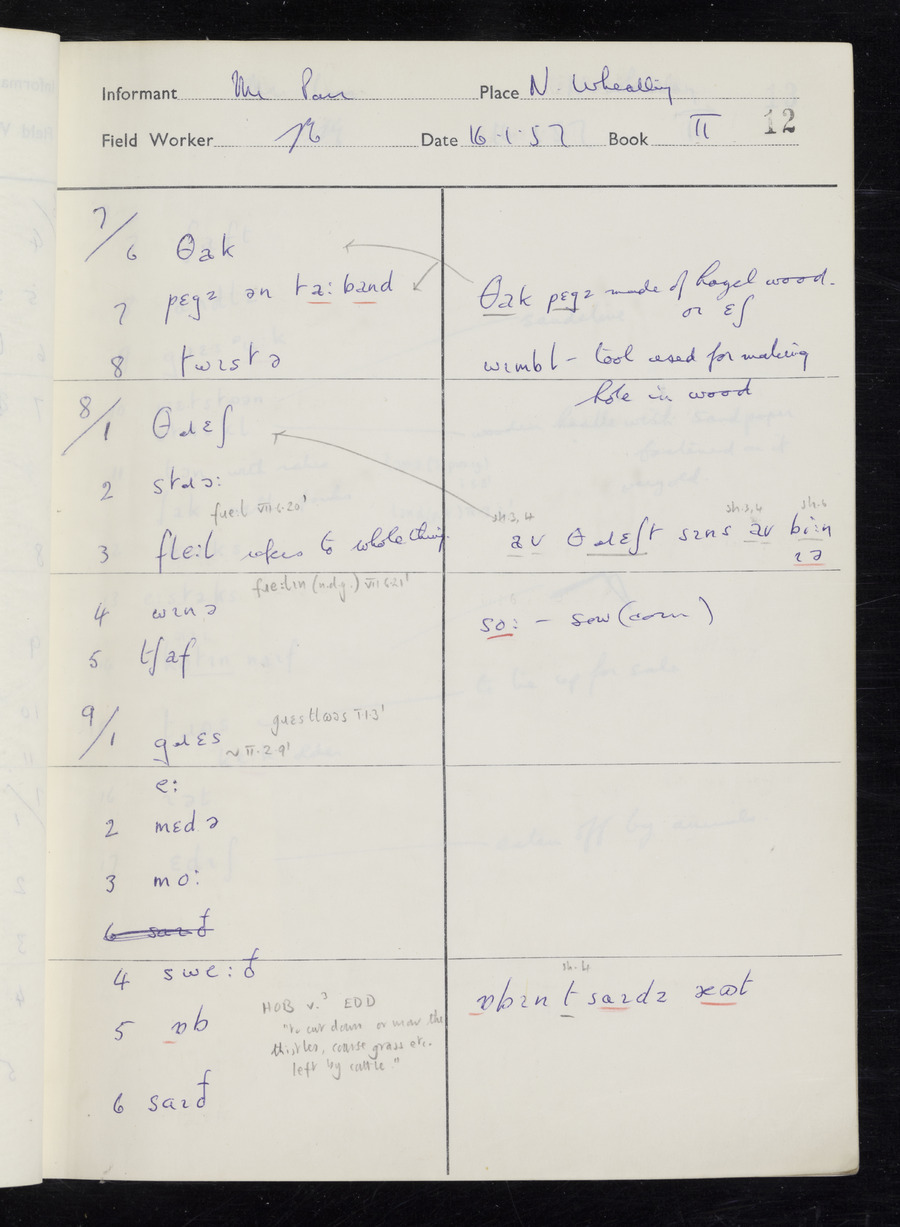 Informant Mr Parr Place N. Wheatley
Field Worker Date 16·1·57 Book II 12
7/6 θak
7 pɛgz ən ta:band
θak pɛgz made of hazel wood.
or ɛʃ
8 twɪstə
wɪmbl – tool used for making
hole in wood
8/1 θɹɛʃ
2 stɹɔ:
fue:l VII·6·20'
3 flɛ:l refers to whole thing.
sh.3,4 sh.3,4 sh.4
av θɹɛʃt sɪns av bi:n
ɪə
4 wɪnə
so: – sow (corn)
5 tʃaf
9/1 gɹɛs
~ II·2·9'
e:
2 mɛdə
3 mo:
6 saɪð
4 swe:ð
sh.4
ɒbɪn t saɪdz
5 ɒb
HOB v.³ EDD
"to cut down or mow the
thistles, coarse grass etc.
left by cattle."
6 saɪð